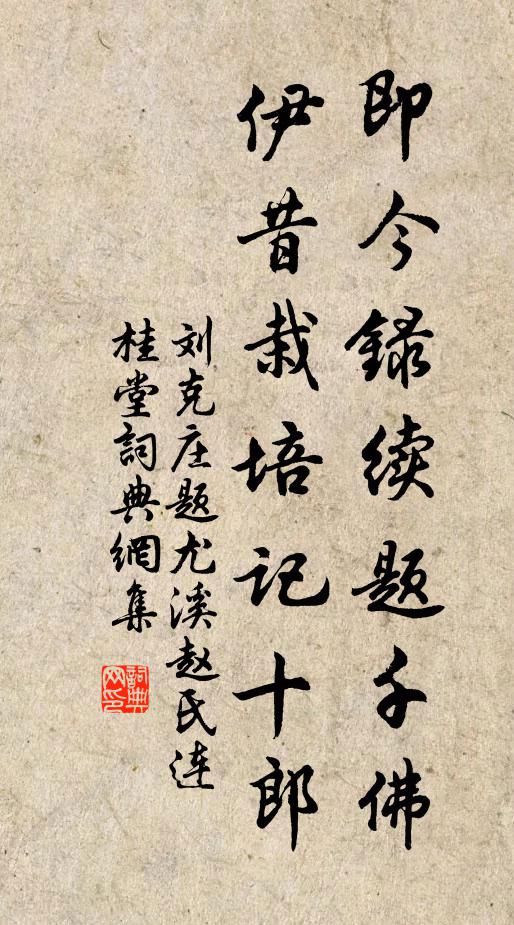 即今録续题千佛
伊昔栽培记十郎
刘克庄题尤溪赵氏连
桂堂詞典網集
詞典网印